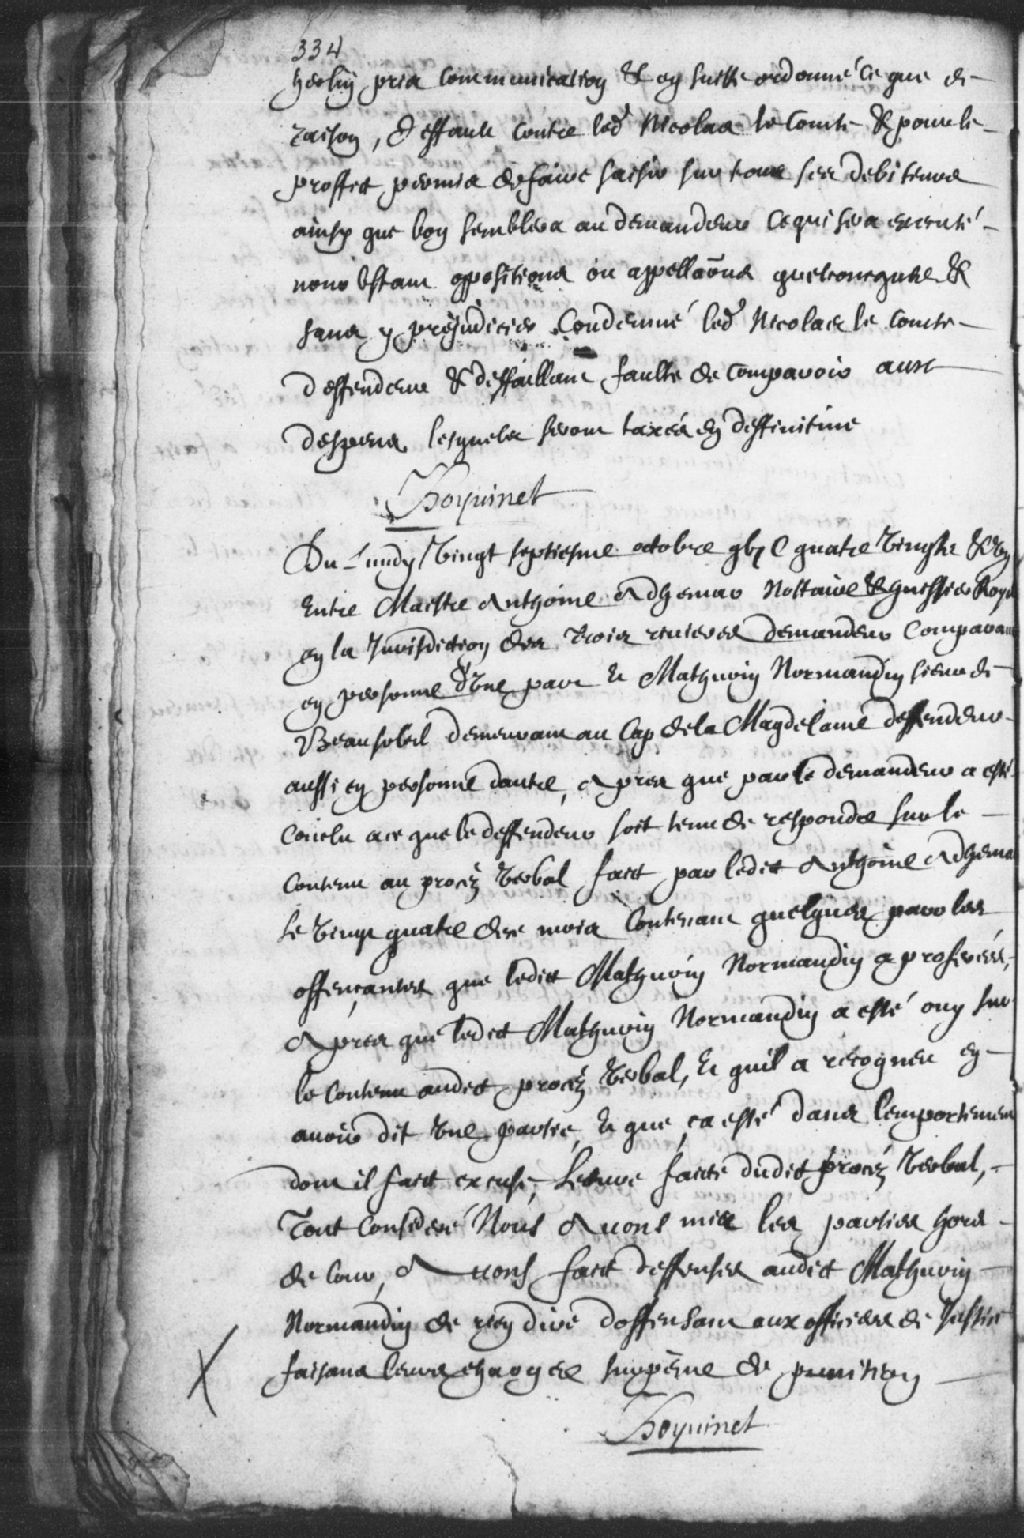 334
pria communication & en suitte ordonné ce que de
raison, deffault contre led. Nicolas le Comte & pour le
proffict permis de faire saisir sur tous ses debiteurs
ainsy que bon semblera au demandeur ce qui sera executé
nonobstant oppositions ou appellãons quelconques &
sans y prejudicier. Condemné led. Nicolas le Comte
deffendeur & deffaillant faulte de comparoir aux
despens lesquels seront taxés en deffinitive
Boyvinet
Du Lundy Vingt septiesme octobre gbj C quatre Vingts & Un
Entre Maistre Anthoine Adhemar Nottaire & greffier Royal
en la Jurisdiction des Trois rivieres demandeur Comparant
en personne d'Une part Et Mathurin Normandin sieur de
Beausoleil demeurant au Cap de la Magdelaine deffendeur
aussi en personne dautre, Apres que par le demandeur a esté
conclu a ce que le deffendeur soit tenu de respondre sur le
contenu au procez Verbal faict par ledict Anthoine Adhemar
le Vingt quatre de ce mois Contenant quelques parolles
offençantes que ledict Mathurin Normandin a proferées,
Apres que ledict Mathurin Normandin a esté ouy sur
le contenu audict procez Verbal, Et quil a recogneu en
avoir dit Une partie, Et que ça esté dans l'emportement
dont il faict excuse, Lecture faicte dudict procez Verbal,
Tout Consideré Nous Avons mis les parties hors
de Cour, Avons faict deffenses audict Mathurin
Normandin de rien dire d'offensant aux officiers de Justice
faisans leurs charges sur peine de punition
Boyvinet